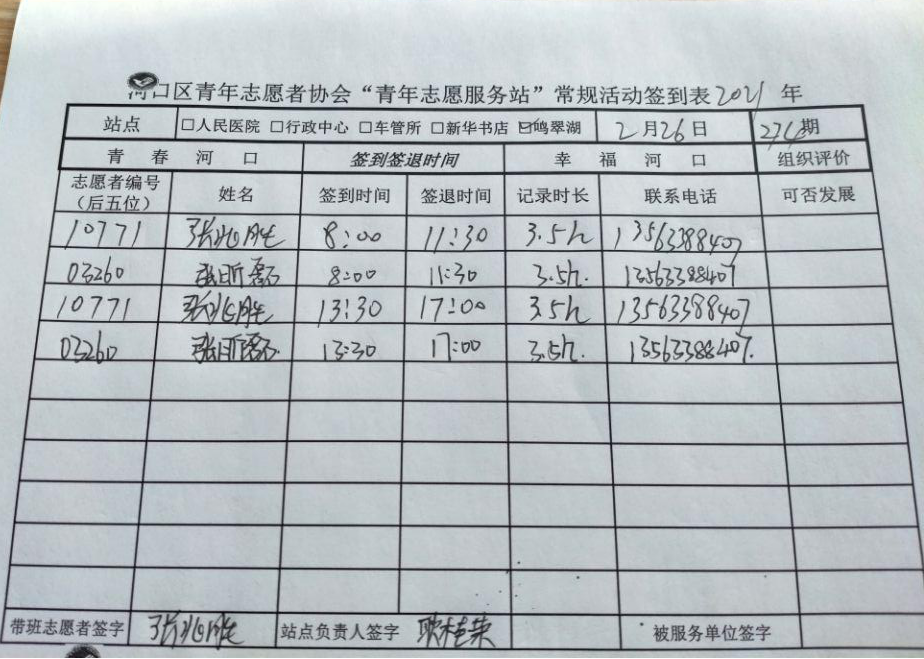 河口区青年志愿者协会“青年志愿服务站”常规活动签到表2021年
站点 □人民医院 □行政中心 □车管所 □新华书店 ☑鸣翠湖 2月26日 期
青春河口 签到签退时间 幸福河口 组织评价
志愿者编号（后五位） 姓名 签到时间 签退时间 记录时长 联系电话 可否发展
10771 张兆胜 8:00 11:30 3.5h 13563388407
03260 张昕 8:00 11:30 3.5h. 13563388407
10771 张兆胜 13:30 17:00 3.5h 13563388407
03260 张昕 13:30 17:00 3.5h. 13563388407.
带班志愿者签字 张兆胜 站点负责人签字 耿桂荣 被服务单位签字